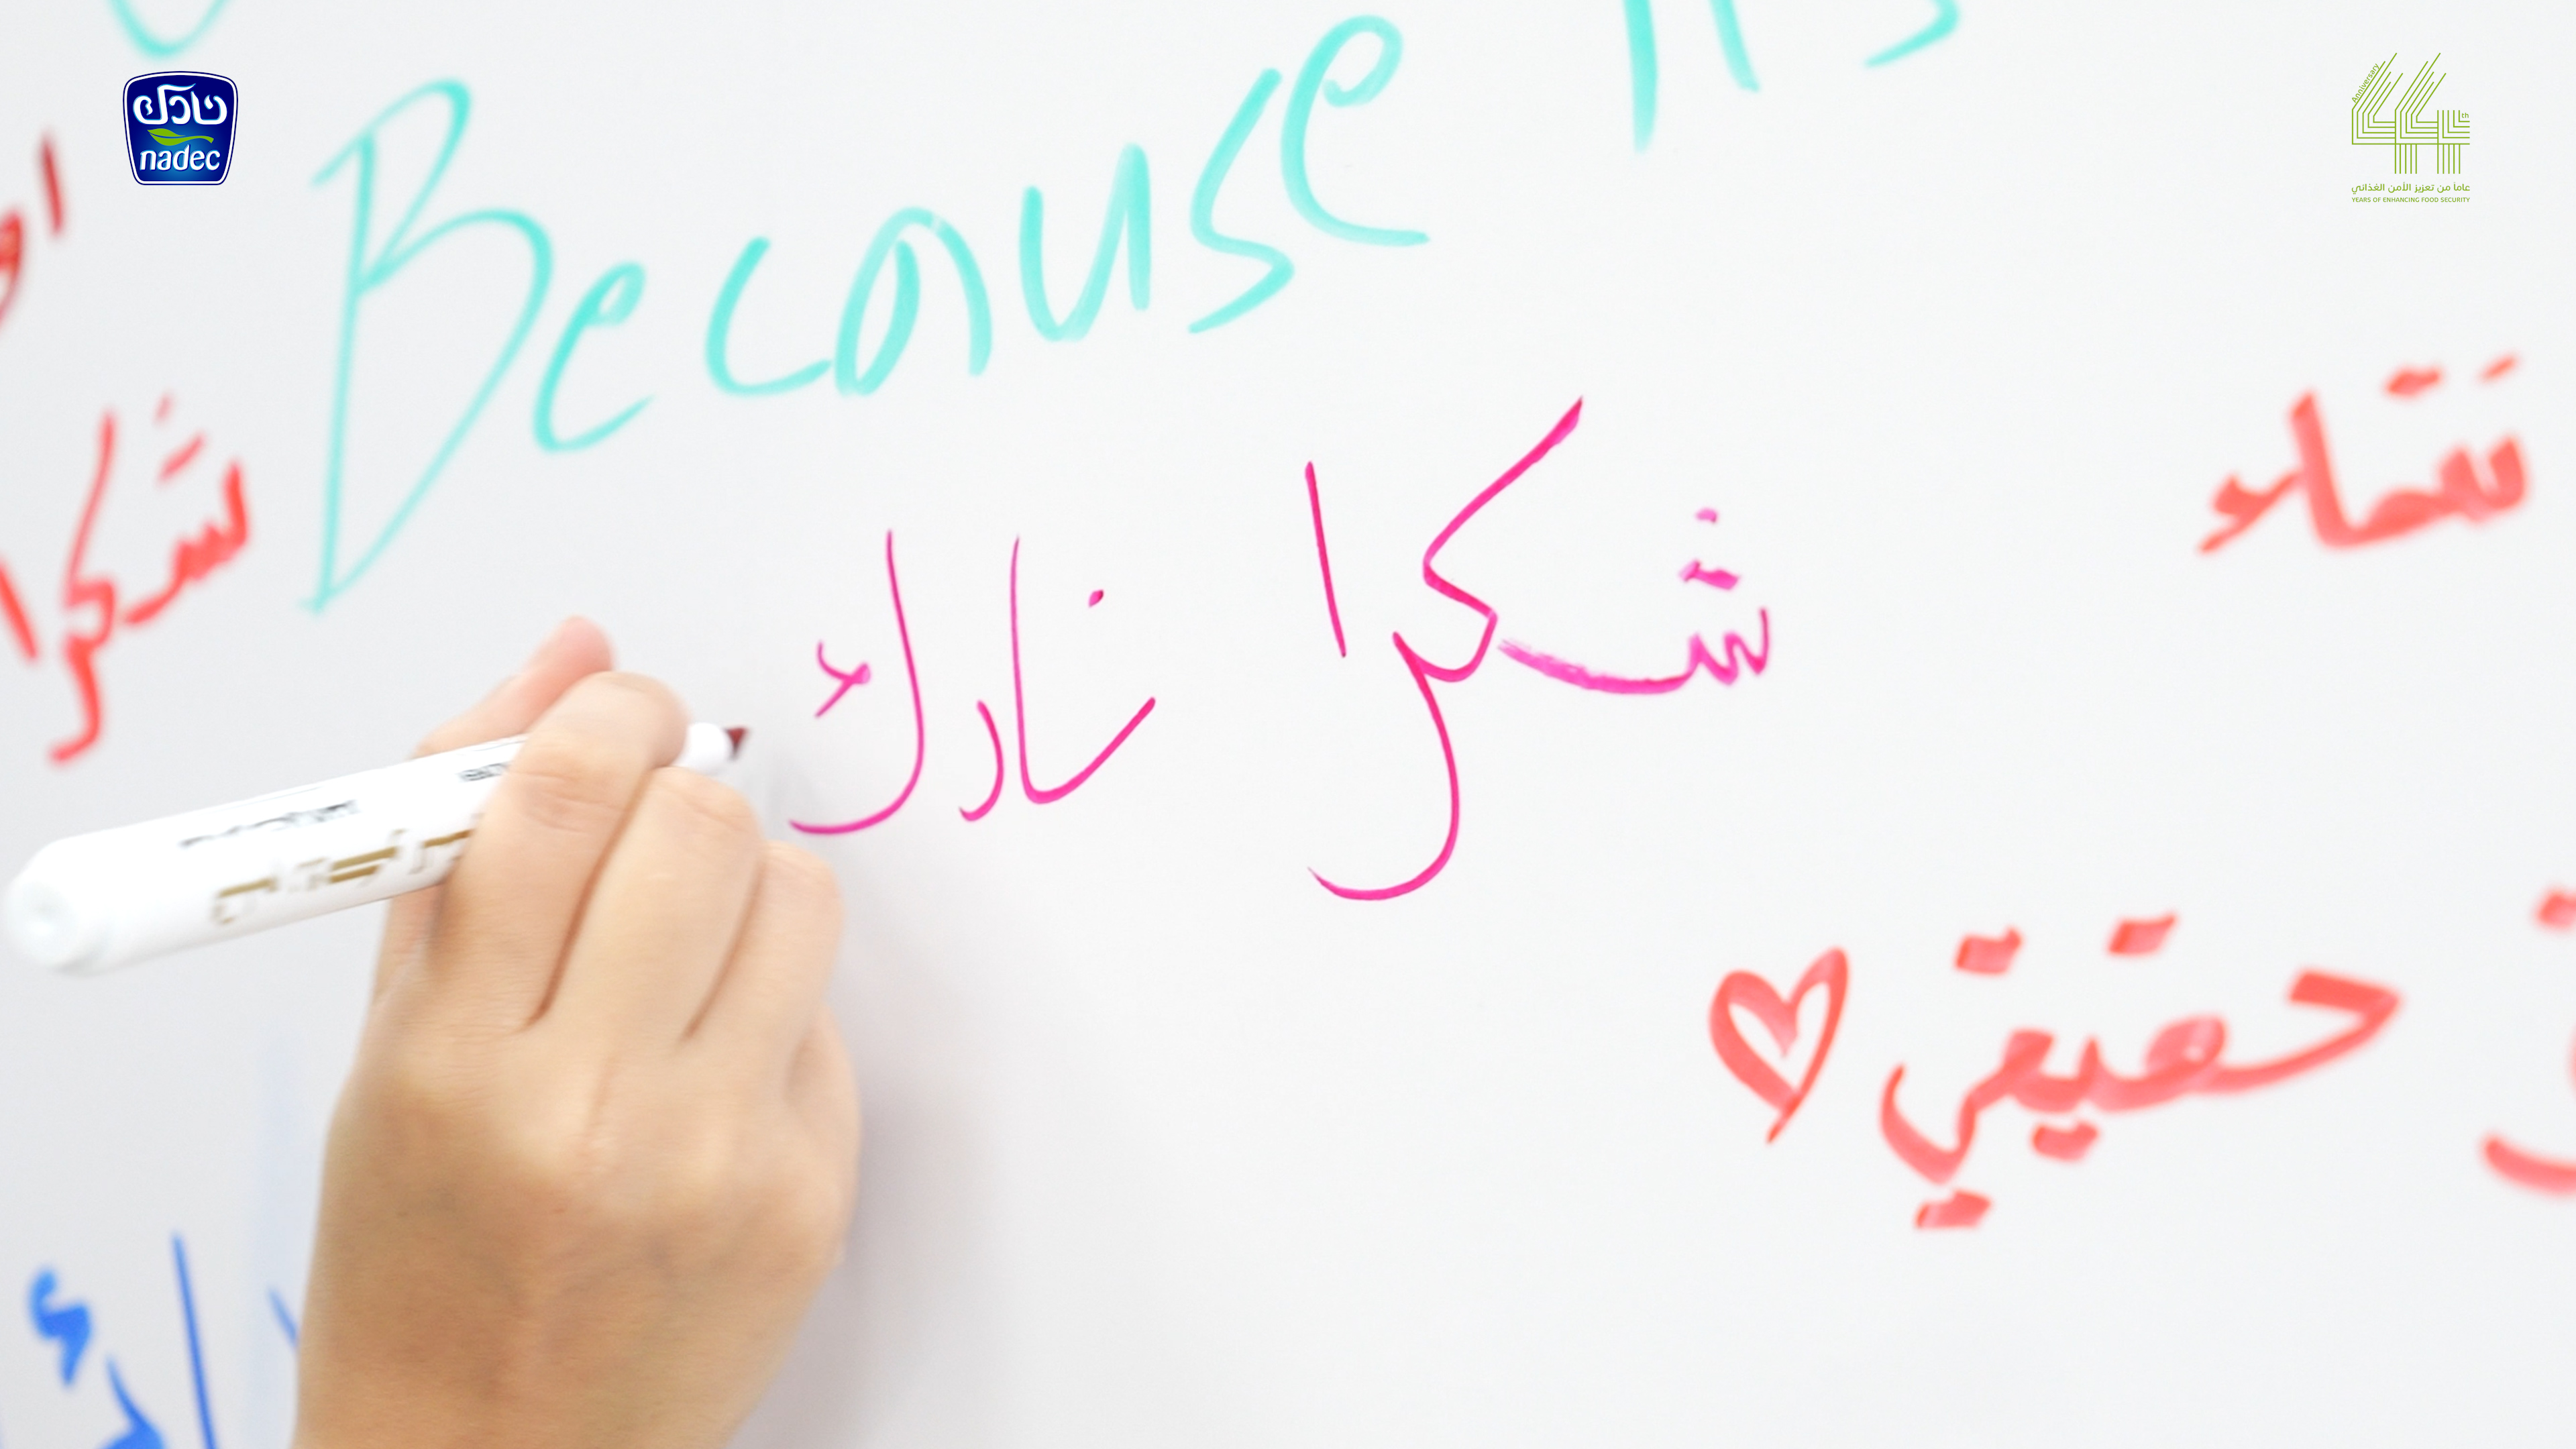 نادك
nadec
Anniversary
44th
عاماً من تعزيز الأمن الغذائي
YEARS OF ENHANCING FOOD SECURITY
Because
شكرا نادك
شكرا
حقيقي